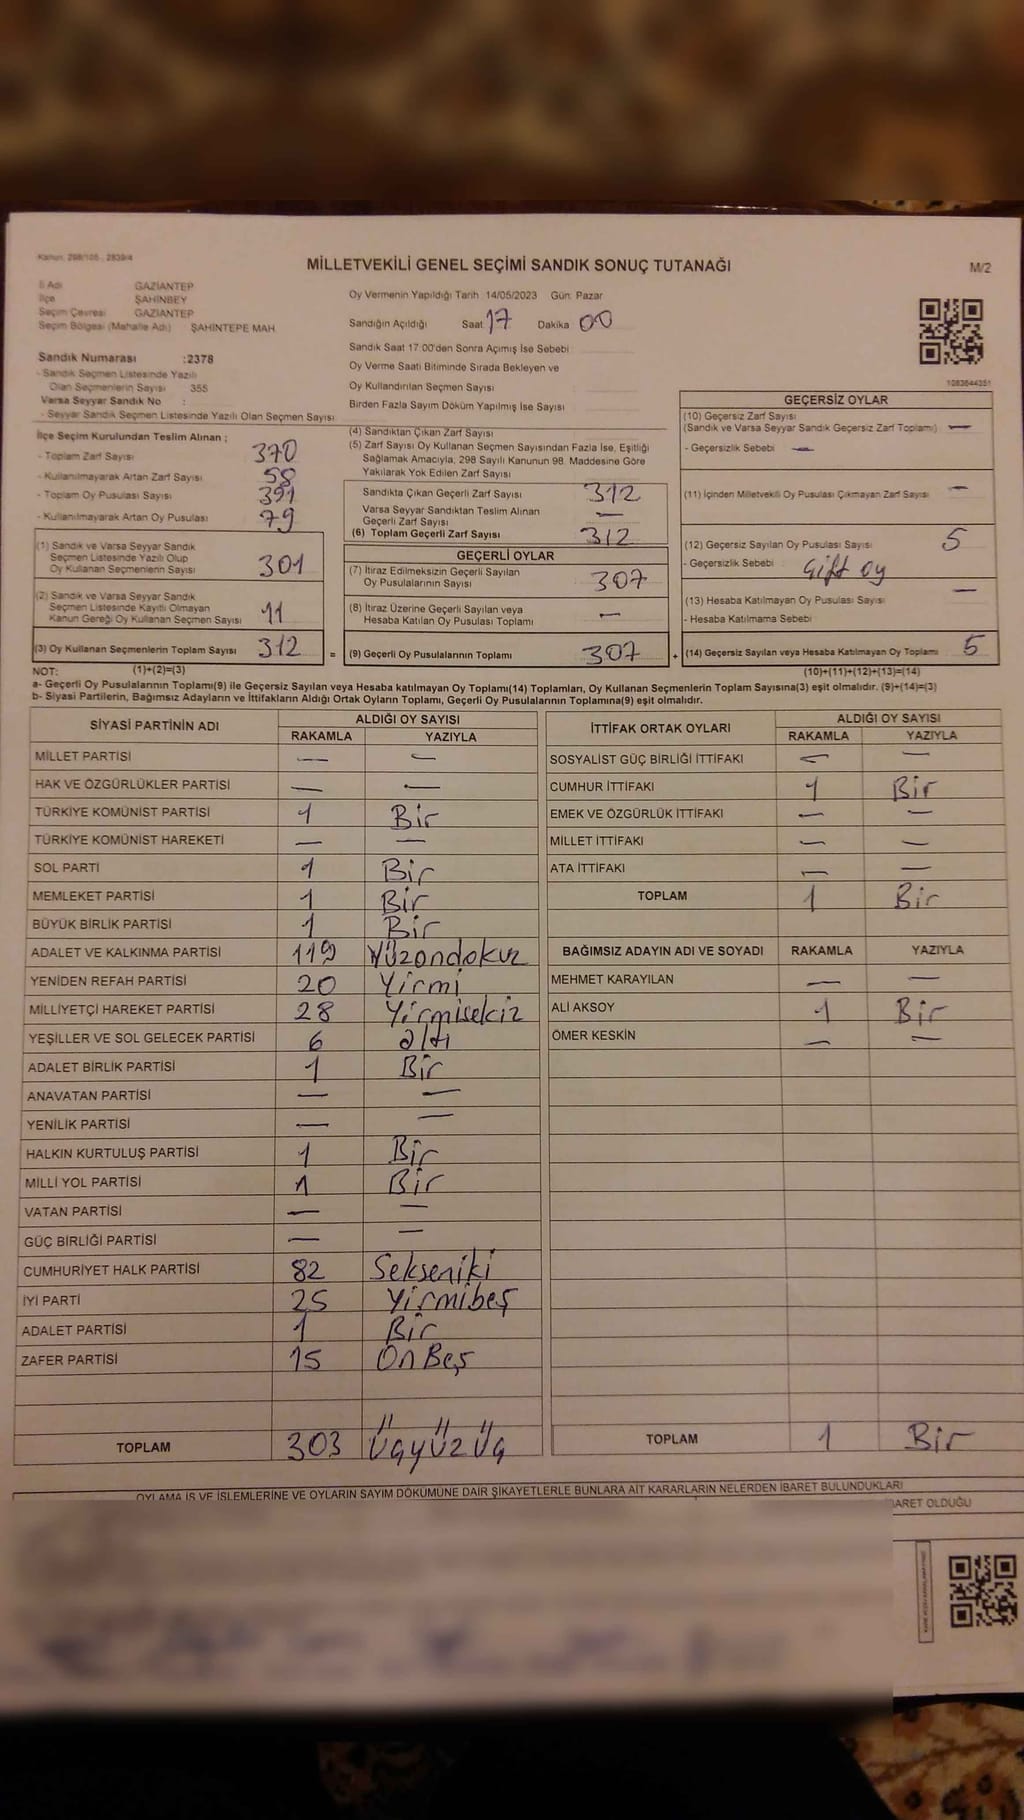 Kanun: 298/105 - 2839/4
MİLLETVEKİLİ GENEL SEÇİMİ SANDIK SONUÇ TUTANAĞI
M/2
İl Adı GAZİANTEP
İlçe ŞAHİNBEY
Seçim Çevresi GAZİANTEP
Seçim Bölgesi (Mahalle Adı) ŞAHİNTEPE MAH.
Sandık Numarası :2378
- Sandık Seçmen Listesinde Yazılı
Olan Seçmenlerin Sayısı 355
Varsa Seyyar Sandık No :
- Seyyar Sandık Seçmen Listesinde Yazılı Olan Seçmen Sayısı
Oy Vermenin Yapıldığı Tarih 14/05/2023 Gün: Pazar
Sandığın Açıldığı Saat 17 Dakika 00
Sandık Saat 17:00'den Sonra Açımış İse Sebebi
Oy Verme Saati Bitiminde Sırada Bekleyen ve
Oy Kullandırılan Seçmen Sayısı
Birden Fazla Sayım Döküm Yapılmış İse Sayısı
1083644351
İlçe Seçim Kurulundan Teslim Alınan ;
- Toplam Zarf Sayısı 370
- Kullanılmayarak Artan Zarf Sayısı 58
- Toplam Oy Pusulası Sayısı 391
- Kullanılmayarak Artan Oy Pusulası 79
(1) Sandık ve Varsa Seyyar Sandık
Seçmen Listesinde Yazılı Olup
Oy Kullanan Seçmenlerin Sayısı 301
(2) Sandık ve Varsa Seyyar Sandık
Seçmen Listesinde Kayıtlı Olmayan
Kanun Gereği Oy Kullanan Seçmen Sayısı 11
(3) Oy Kullanan Seçmenlerin Toplam Sayısı 312 =
(4) Sandıktan Çıkan Zarf Sayısı
(5) Zarf Sayısı Oy Kullanan Seçmen Sayısından Fazla İse, Eşitliği
Sağlamak Amacıyla, 298 Sayılı Kanunun 98. Maddesine Göre
Yakılarak Yok Edilen Zarf Sayısı
Sandıkta Çıkan Geçerli Zarf Sayısı 312
Varsa Seyyar Sandıktan Teslim Alınan
Geçerli Zarf Sayısı —
(6) Toplam Geçerli Zarf Sayısı 312
GEÇERLİ OYLAR
(7) İtiraz Edilmeksizin Geçerli Sayılan
Oy Pusulalarının Sayısı 307
(8) İtiraz Üzerine Geçerli Sayılan veya
Hesaba Katılan Oy Pusulası Toplamı —
(9) Geçerli Oy Pusulalarının Toplamı 307 +
GEÇERSİZ OYLAR
(10) Geçersiz Zarf Sayısı
(Sandık ve Varsa Seyyar Sandık Geçersiz Zarf Toplamı) —
- Geçersizlik Sebebi —
(11) İçinden Milletvekili Oy Pusulası Çıkmayan Zarf Sayısı —
(12) Geçersiz Sayılan Oy Pusulası Sayısı 5
- Geçersizlik Sebebi Çift oy
(13) Hesaba Katılmayan Oy Pusulası Sayısı —
- Hesaba Katılmama Sebebi
(14) Geçersiz Sayılan veya Hesaba Katılmayan Oy Toplamı 5
NOT: (1)+(2)=(3) (10)+(11)+(12)+(13)=(14)
a- Geçerli Oy Pusulalarının Toplamı(9) ile Geçersiz Sayılan veya Hesaba katılmayan Oy Toplamı(14) Toplamları, Oy Kullanan Seçmenlerin Toplam Sayısına(3) eşit olmalıdır. (9)+(14)=(3)
b- Siyasi Partilerin, Bağımsız Adayların ve İttifakların Aldığı Ortak Oyların Toplamı, Geçerli Oy Pusulalarının Toplamına(9) eşit olmalıdır.
SİYASİ PARTİNİN ADI ALDIĞI OY SAYISI
RAKAMLA YAZIYLA
MİLLET PARTİSİ — —
HAK VE ÖZGÜRLÜKLER PARTİSİ — —
TÜRKİYE KOMÜNİST PARTİSİ 1 Bir
TÜRKİYE KOMÜNİST HAREKETİ — —
SOL PARTİ 1 Bir
MEMLEKET PARTİSİ 1 Bir
BÜYÜK BİRLİK PARTİSİ 1 Bir
ADALET VE KALKINMA PARTİSİ 119 Yüzondokuz
YENİDEN REFAH PARTİSİ 20 Yirmi
MİLLİYETÇİ HAREKET PARTİSİ 28 Yirmisekiz
YEŞİLLER VE SOL GELECEK PARTİSİ 6 altı
ADALET BİRLİK PARTİSİ 1 Bir
ANAVATAN PARTİSİ — —
YENİLİK PARTİSİ — —
HALKIN KURTULUŞ PARTİSİ 1 Bir
MİLLİ YOL PARTİSİ 1 Bir
VATAN PARTİSİ — —
GÜÇ BİRLİĞİ PARTİSİ — —
CUMHURİYET HALK PARTİSİ 82 Sekseniki
İYİ PARTİ 25 Yirmibeş
ADALET PARTİSİ 1 Bir
ZAFER PARTİSİ 15 On Beş
TOPLAM 303 Üçyüz Üç
İTTİFAK ORTAK OYLARI ALDIĞI OY SAYISI
RAKAMLA YAZIYLA
SOSYALİST GÜÇ BİRLİĞİ İTTİFAKI — —
CUMHUR İTTİFAKI 1 Bir
EMEK VE ÖZGÜRLÜK İTTİFAKI — —
MİLLET İTTİFAKI — —
ATA İTTİFAKI — —
TOPLAM 1 Bir
BAĞIMSIZ ADAYIN ADI VE SOYADI RAKAMLA YAZIYLA
MEHMET KARAYILAN — —
ALİ AKSOY 1 Bir
ÖMER KESKİN — —
TOPLAM 1 Bir
OYLAMA İŞ VE İŞLEMLERİNE VE OYLARIN SAYIM DÖKÜMÜNE DAİR ŞİKAYETLERLE BUNLARA AİT KARARLARIN NELERDEN İBARET BULUNDUKLARI
BARET OLDUĞU